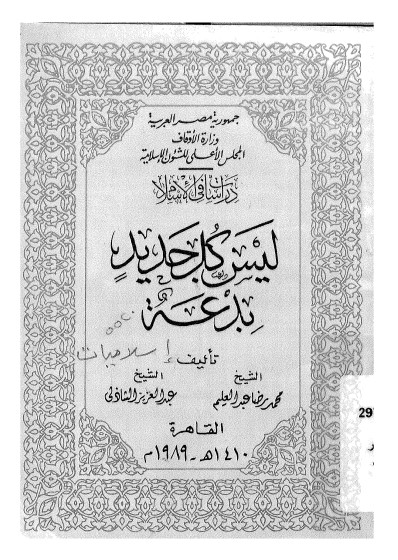 جمهورية مصر العربية
وزارة الأوقاف
المجلس الأعلى للشئون الإسلامية
دراسات في الإسلام
ليس كل جديد
بدعة
تأليف إسلاميات
الشيخ الشيخ
محمد رضا عبد العليم عبد العزيز الشاذلى
القاهرة
١٤١٠هـ - ١٩٨٩م
29